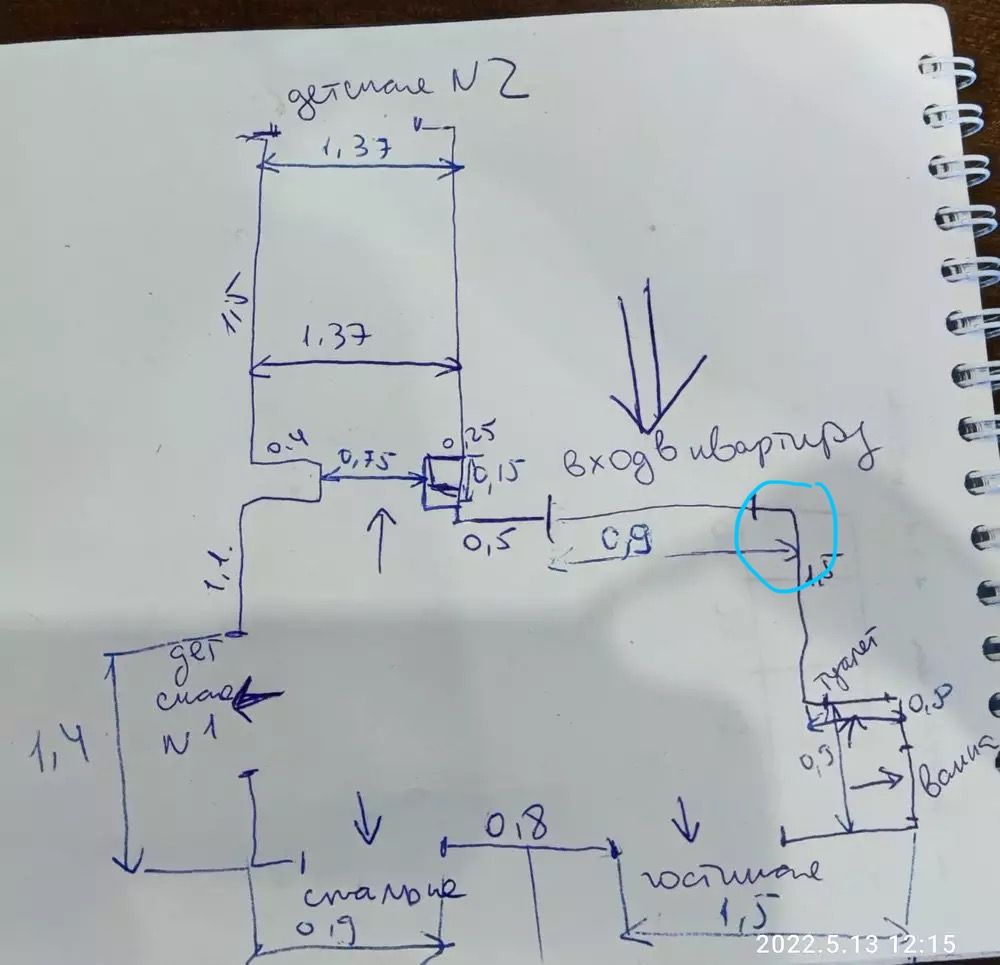 детская N2
1,37
1,5
1,37
0,4
0,75
0,25
0,15
вход в квартиру
0,5
0,9
1,5
1,1
дет
ская
N1
1,4
туалет
0,8
0,9
ванна
0,8
спальня
0,9
гостиная
1,5
2022.5.13 12:15